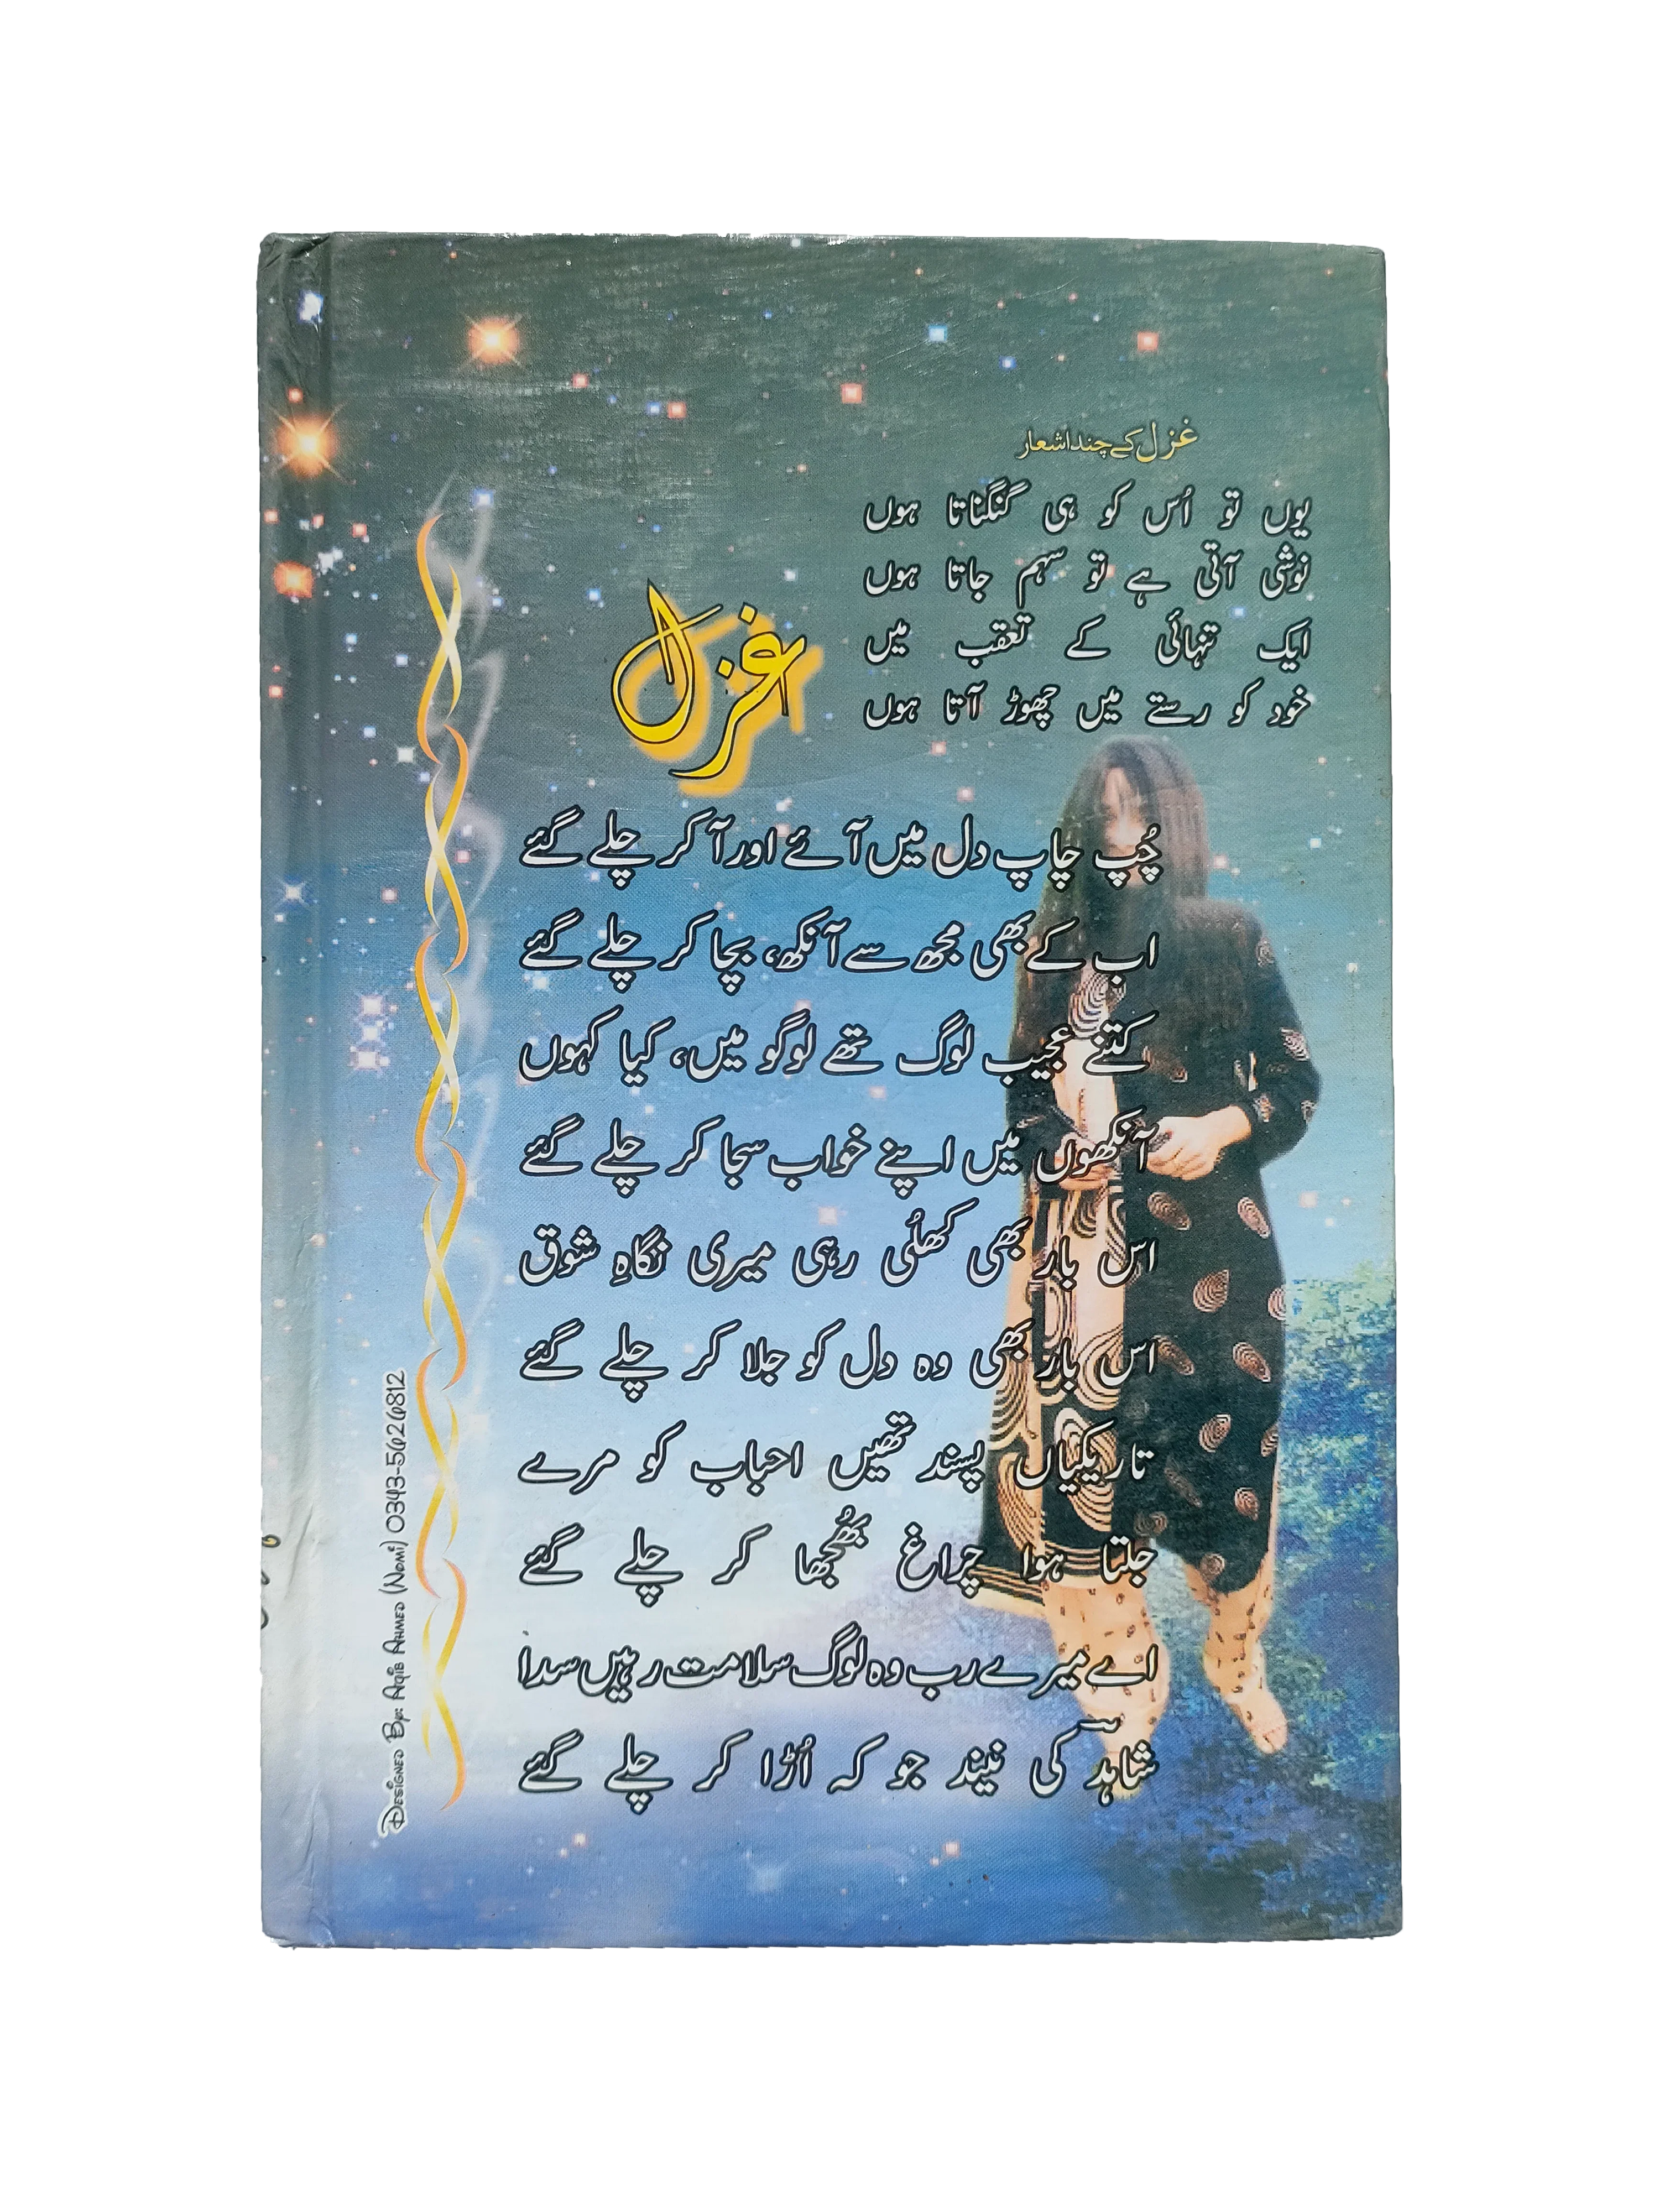 غزل کے چند اشعار
یوں تو اُس کو ہی گنگناتا ہوں
خوشی آتی ہے تو سہم جاتا ہوں
ایک تنہائی کے تعقب میں
خود کو رستے میں چھوڑ آتا ہوں
غزل
چُپ چاپ دل میں آئے اور آ کر چلے گئے
اب کے بھی مجھ سے آنکھ، بچا کر چلے گئے
کتنے عجیب لوگ تھے لوگو میں، کیا کہوں
آنکھوں میں اپنے خواب سجا کر چلے گئے
اس بار بھی کھلُی رہی میری نگاہِ شوق
اس بار بھی وہ دل کو جلا کر چلے گئے
تاریکیاں پسند تھیں احباب کو مرے
جلتا ہوا چراغ بُھجھا کر چلے گئے
اے میرے رب وہ لوگ سلامت رہیں سدا
شاہدؔ کی نیند جو کہ اُڑا کر چلے گئے
Designed By: Aqib Ahmed (Nomi) 0343-5626812